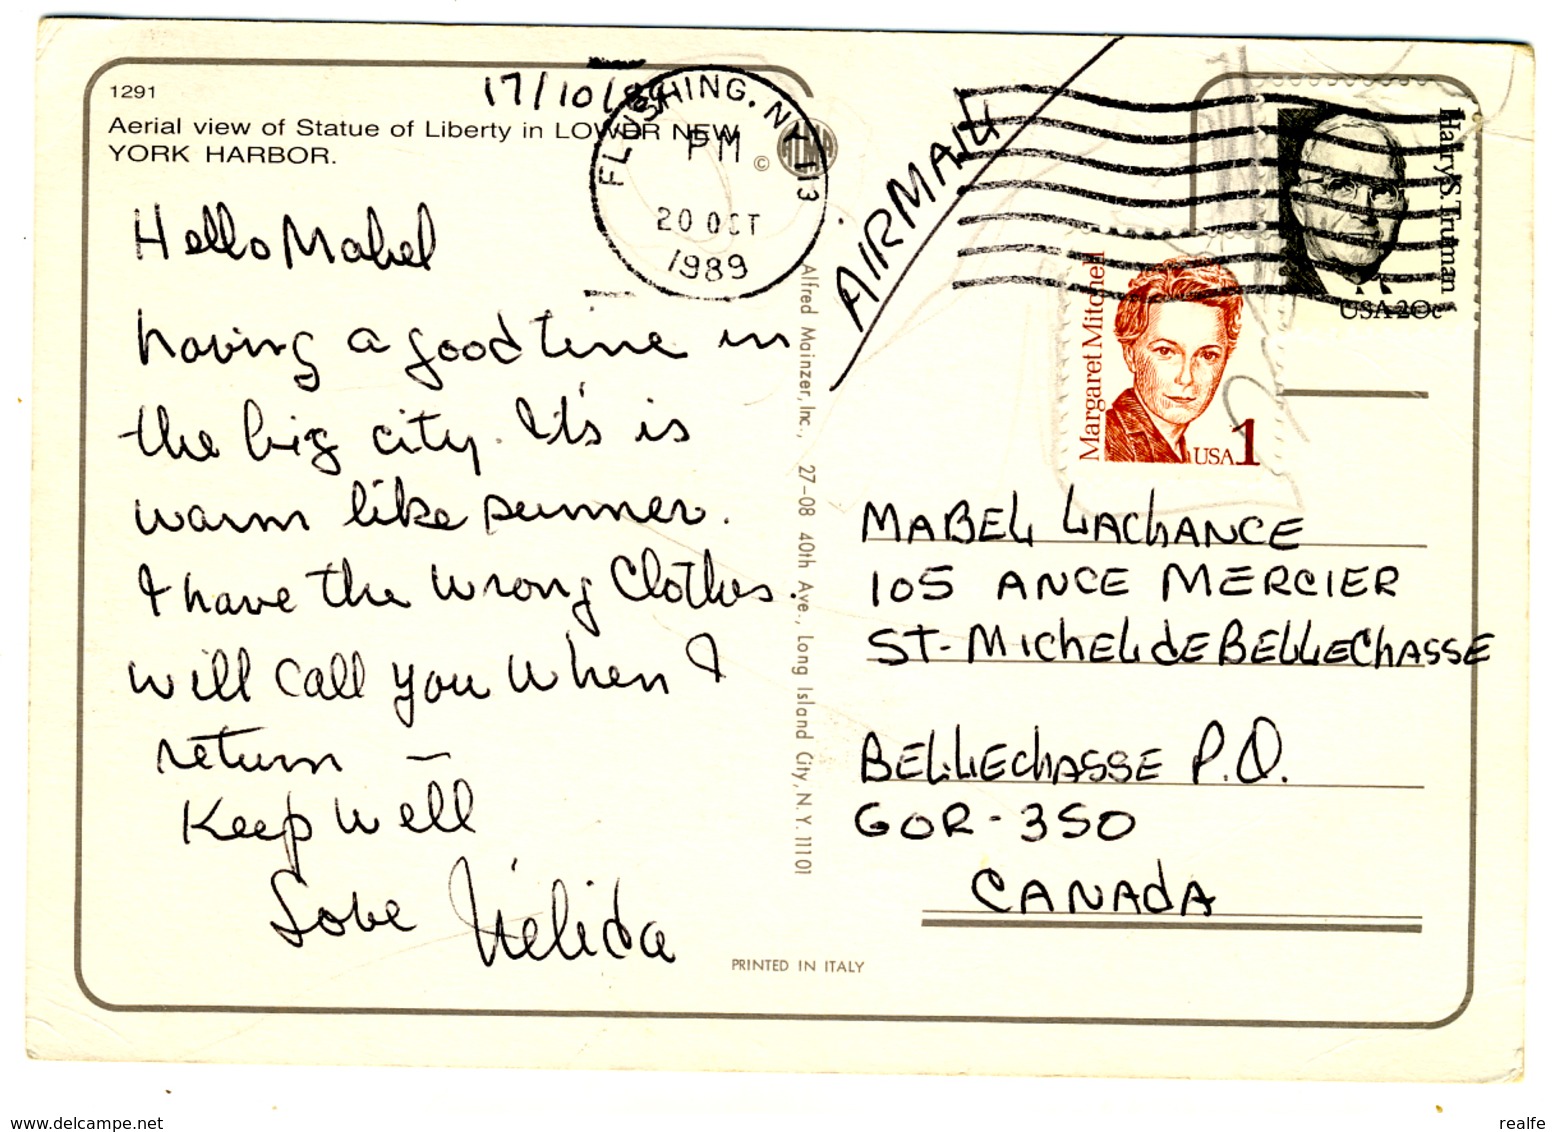 1291
Aerial view of Statue of Liberty in LOWER NEW
YORK HARBOR.
17/10/89
FLUSHING, NY 113
PM
20 OCT
1989
©
Hello Mabel
having a good time in
the big city. It's is
warm like summer.
I have the wrong clothes.
will call you when I
return —
Keep well
Love Nélida
Alfred Mainzer, Inc., 27-08 40th Ave., Long Island City, N.Y. 11101
PRINTED IN ITALY
AIRMAIL
Harry S. Truman
USA 20c
Margaret Mitchell
USA 1
MABEL LAChANCE
105 ANCE MERCIER
ST-MIchEL dE BELLEChASSE
BELLEchASSE P.Q.
GOR-3SO
CANAdA
www.delcampe.net
realfe